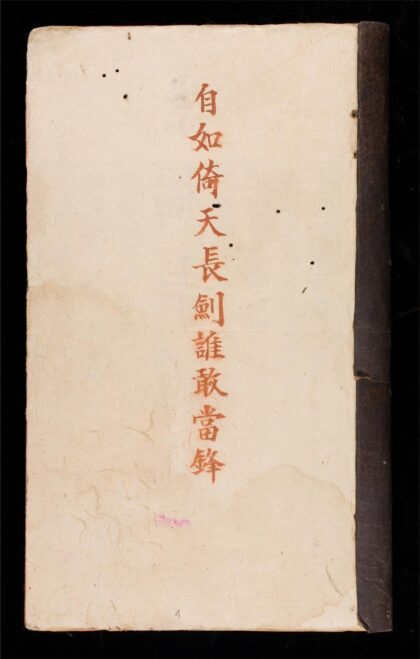 自如倚天長劍誰敢當鋒